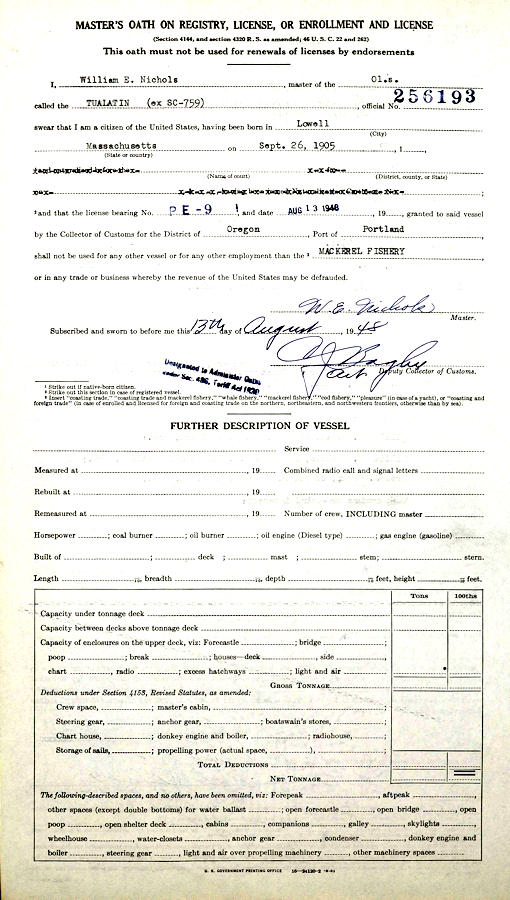 MASTER'S OATH ON REGISTRY, LICENSE, OR ENROLLMENT AND LICENSE
(Section 4144, and section 4320 R. S. as amended; 46 U. S. C. 22 and 262)
This oath must not be used for renewals of licenses by endorsements
I, William E. Nichols, master of the Ol.s.
called the TUALATIN (ex SC-759), official No. 256193
swear that I am a citizen of the United States, having been born in Lowell
(City)
Massachusetts on Sept. 26, 1905
(State or country)
(Name of court) (District, county, or State)
² and that the license bearing No. PE-9, and date AUG 13 1948, 19, granted to said vessel
by the Collector of Customs for the District of Oregon, Port of Portland
shall not be used for any other vessel or for any other employment than the ³ MACKEREL FISHERY
or in any trade or business whereby the revenue of the United States may be defrauded.
W. E. Nichols
Master.
Subscribed and sworn to before me this 13th day of August, 1948
Bagby
Deputy Collector of Customs.
Designated to Administer Oaths
under Sec. 486, Tariff Act 1930
¹ Strike out if native-born citizen.
² Strike out this section in case of registered vessel.
³ Insert "coasting trade," "coasting trade and mackerel fishery," "whale fishery," "mackerel fishery," "cod fishery," "pleasure" (in case of a yacht), or "coasting and
foreign trade" (in case of enrolled and licensed for foreign and coasting trade on the northern, northeastern, and northwestern frontiers, otherwise than by sea).
FURTHER DESCRIPTION OF VESSEL
Service
Measured at, 19 Combined radio call and signal letters
Rebuilt at, 19
Remeasured at, 19 Number of crew, INCLUDING master
Horsepower; coal burner; oil burner; oil engine (Diesel type); gas engine (gasoline)
Built of; deck; mast; stem; stern.
Length, breadth, depth feet, height feet.
Tons 100ths
Capacity under tonnage deck
Capacity between decks above tonnage deck
Capacity of enclosures on the upper deck, viz: Forecastle; bridge;
poop; break; houses—deck, side
chart, radio; excess hatchways; light and air
GROSS TONNAGE
Deductions under Section 4153, Revised Statutes, as amended:
Crew space,; master's cabin,;
Steering gear,; anchor gear,; boatswain's stores,;
Chart house,; donkey engine and boiler,; radiohouse,;
Storage of sails,; propelling power (actual space,),
TOTAL DEDUCTIONS
NET TONNAGE
The following-described spaces, and no others, have been omitted, viz: Forepeak, aftpeak,
other spaces (except double bottoms) for water ballast; open forecastle, open bridge, open
poop, open shelter deck, cabins, companions, galley, skylights
wheelhouse, water-closets, anchor gear, condenser, donkey engine and
boiler, steering gear, light and air over propelling machinery, other machinery spaces
U. S. GOVERNMENT PRINTING OFFICE